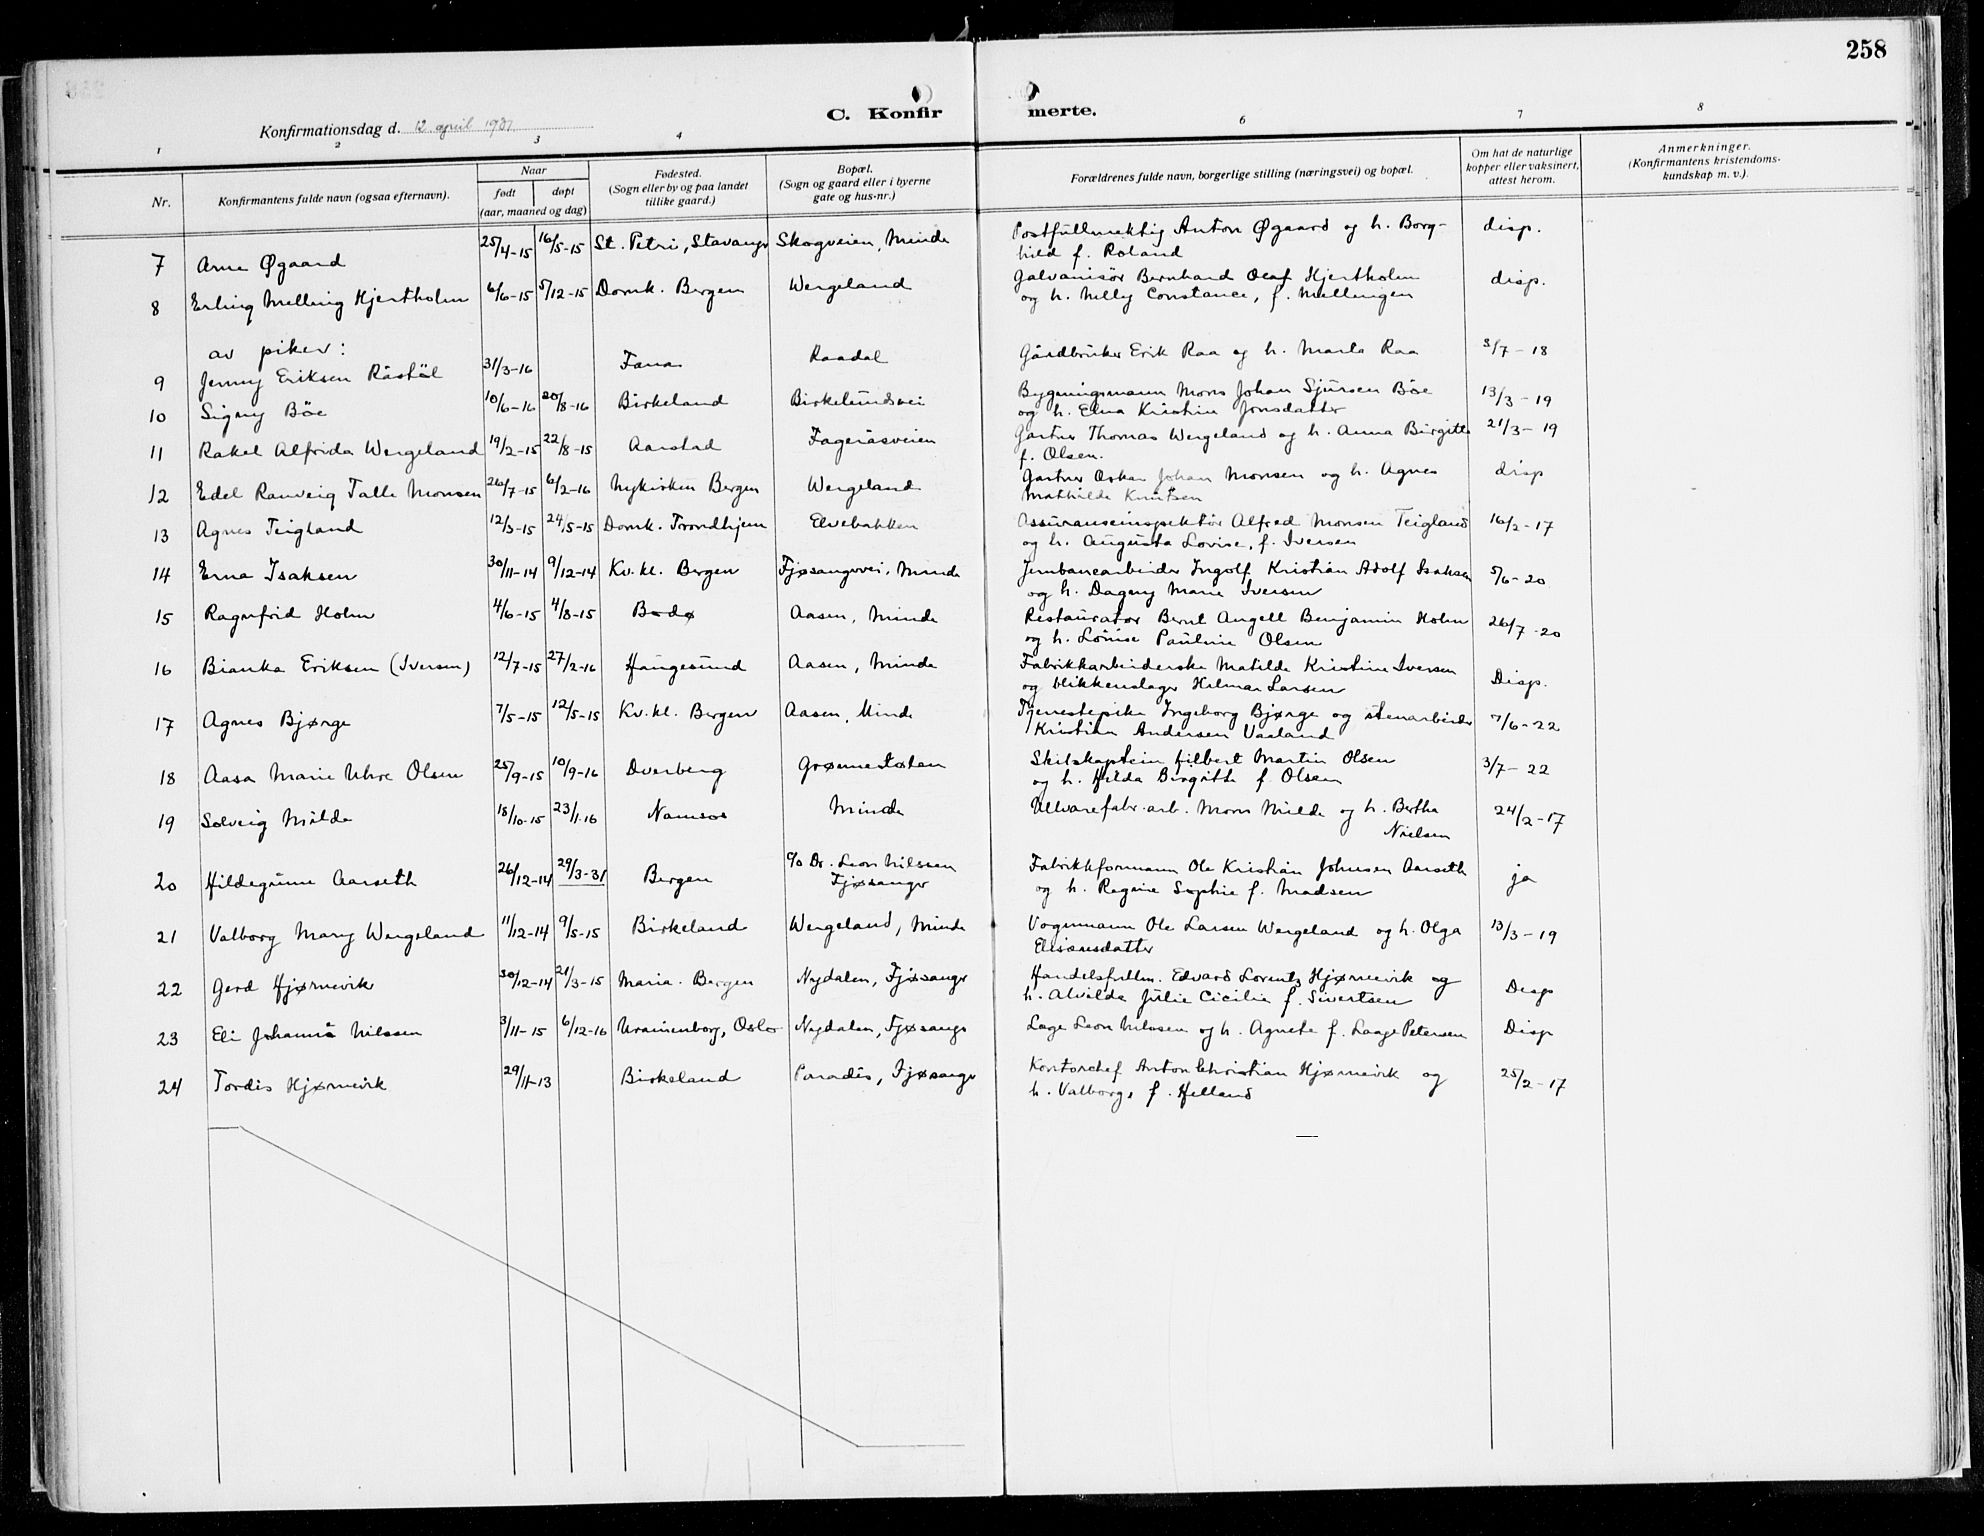 258
C. Konfirmerte.
Konfirmationsdag d. 12 april 1931
1 2 3 4 6 7 8
Nr. Konfirmantens fulde navn (ogsaa efternavn). Naar født døpt (aar, maaned og dag) Fødested. (Sogn eller by og paa landet tillike gaard.) Bopæl. (Sogn og gaard eller i byerne gate og hus-nr.) Forældrenes fulde navn, borgerlige stilling (næringsvei) og bopæl. Om hat de naturlige kopper eller vaksinert, attest herom. Anmerkninger. (Konfirmantens kristendoms-kundskap m. v.).
7 Arne Øgaard 25/4-15 16/5-15 St. Petri, Stavanger Skogveien, Minde Postfullmektig Anton Øgaard og h. Borg-
hild f. Roland disp.
8 Erling Melling Hjertholm 6/6-15 5/12-15 Domk. Bergen Wergeland Galvanisør Bernhard Olaf Hjertholm
og h. Nelly Constance, f. Mellingen disp.
av piker:
9 Jenny Eriksen Råstøl 31/3-16 Fana Raadal Gårdbruker Erik Raa og h. Marta Raa 3/7-18
10 Signy Böe 10/6-16 20/8-16 Birkeland Birkelundsvei Bygningsmann Mons Johan Sjursen Böe
og h. Elna Kristine Jonsdatter 13/3-19
11 Rakel Alfrida Wergeland 19/2-15 22/8-15 Aarstad Fageråsveien Gartner Thomas Wergeland og h. Anna Birgitte
f. Olsen. 21/3-19
12 Edel Ranveig Talle Monsen 26/7-15 6/2-16 Nykirken Bergen Wergeland Gartner Oskar Johan Monsen og h. Agnes
Mathilde Knutsen disp
13 Agnes Teigland 12/3-15 24/5-15 Domk. Trondhjem Elvebakken Assuranseinspektör Alfred Monsen Teigland
og h. Augusta Lovise, f. Iversen 16/2-17
14 Erna Isaksen 30/11-14 9/12-14 Kv.kl. Bergen Fjøsangervei, Minde Jernbanearbeider Ingolf Kristian Adolf Isaksen
og h. Dagny Marie Iversen 5/6-20
15 Ragnfrid Holm 4/6-15 4/8-15 Bodø Aasen, Minde Restauratør Bernt Angell Benjamin Holm
og h. Louise Pauline Olsen 26/7-20
16 Bianka Eriksen (Iversen) 12/7-15 27/2-16 Haugesund Aasen, Minde Fabrikkarbeiderske Matilde Kristine Iversen
og blikkenslager Hilmar Larsen Disp.
17 Agnes Bjørge 7/5-15 12/5-15 Kv.kl. Bergen Aasen, Minde Tjenestepike Ingeborg Bjørge og stenarbeider
Kristian Andersen Vaaland 7/6-22
18 Aasa Marie Uhre Olsen 25/9-15 10/9-16 Dverberg Grønnestølen Skibskaptein Filbert Martin Olsen
og h. Hilda Birgitte f. Olsen 3/7-22
19 Solveig Milde 18/10-15 23/1-16 Namsos Minde Ullvarefabr. arb. Mons Milde og h. Bertha
Nielsen 24/2-17
20 Hildegunne Aarseth 26/12-14 29/3-31 Bergen c/o Dr. Leon Nilssen
Fjøsanger Fabrikkformann Ole Kristian Johnsen Aarseth
og h. Regine Sophie f. Madsen ja
21 Valborg Mary Wergeland 11/12-14 9/5-15 Birkeland Wergeland, Minde Vognmann Ole Larsen Wergeland og h. Olga
Eliasnesdatter 13/3-19
22 Gerd Hjørnevik 30/12-14 21/3-15 Maria. Bergen Nydalen, Fjøsanger Handelsfullm. Edvard Lorentz Hjørnevik og
h. Alvilde Julie Cicilie f. Sivertsen Disp
23 Eli Johanne Nilssen 3/11-15 6/12-16 Uranienborg, Oslo Nydalen, Fjøsanger Læge Leon Nilssen og h. Agnete f. Laage Petersen Disp
24 Tordis Hjørnevik 29/11-13 Birkeland Paradis, Fjøsanger Kontorchef Anton Christian Hjørnevik og
h. Valborg, f. Helland 25/2-17